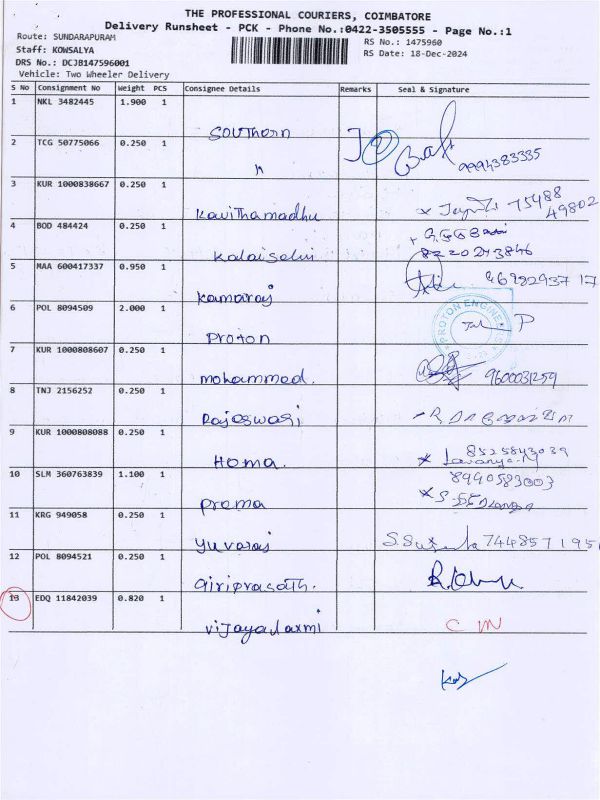 THE PROFESSIONAL COURIERS, COIMBATORE
Delivery Runsheet - PCK - Phone No.:0422-3505555 - Page No.:1
Route: SUNDARAPURAM
RS No.: 1475960
Staff: KOWSALYA
RS Date: 18-Dec-2024
DRS No.: DCJB147596001
Vehicle: Two Wheeler Delivery
S No Consignment No Weight PCS Consignee Details Remarks Seal & Signature
1 NKL 3482445 1.900 1 Southern
2 TCG 50775066 0.250 1 " 9994383335
3 KUR 1000838667 0.250 1 Kavithamadhu 75488 49802
4 BOD 484424 0.250 1 Kalaiselvi 8220243846
5 MAA 600417337 0.950 1 Kamaraj
6 POL 8094509 2.000 1 Proton PROTON ENGINEE
7 KUR 1000808607 0.250 1 Mohammed. 9600031259
8 TNJ 2156252 0.250 1 Rajeswari
9 KUR 1000808088 0.250 1 Hema. 8525843039
10 SLM 360763839 1.100 1 Prema 8940583003
11 KRG 949058 0.250 1 Yuvaraj 7448571951
12 POL 8094521 0.250 1 Giriprasath.
13 EDQ 11842039 0.820 1 Vijayalaxmi C M